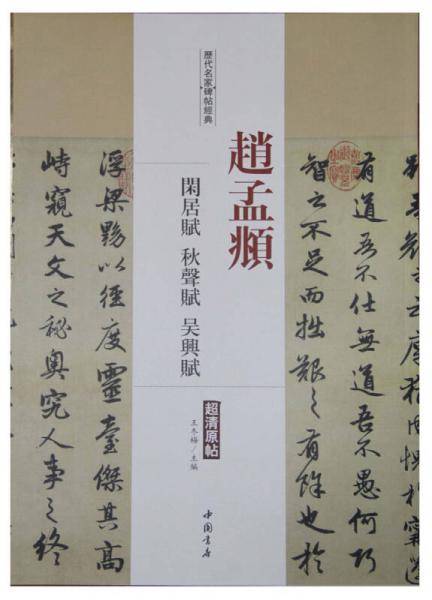 歷代名家碑帖經典
趙孟頫
閑居賦 秋聲賦 吴興賦
超清原帖
王冬梅/主編
中國書店
吾顏之云厚猶内愧於寧蘧
有道吾不仕無道吾不愚何巧
智之不足而拙艱之有餘也於
浮梁黝以徑度靈臺傑其高
峙窺天文之秘奧究人事之終